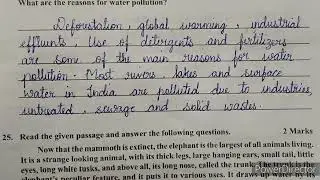 What are the reasons for water pollution?
Deforestation, global warming, industrial
effluents, Use of detergents and fertilizers
are some of the main reasons for water
pollution. Most rivers, lakes and surface
water in India are polluted due to industries,
untreated, sewage and solid wastes.
25. Read the given passage and answer the following questions. 2 Marks
Now that the mammoth is extinct, the elephant is the largest of all animals living.
It is a strange looking animal, with its thick legs, large hanging ears, small tail, little
eyes, long white tusks, and above all, its long nose, called the trunk. The trunk is the
elephant's peculiar feature, and it puts it to various uses. It draws up water by its
Made with
PowerDirector